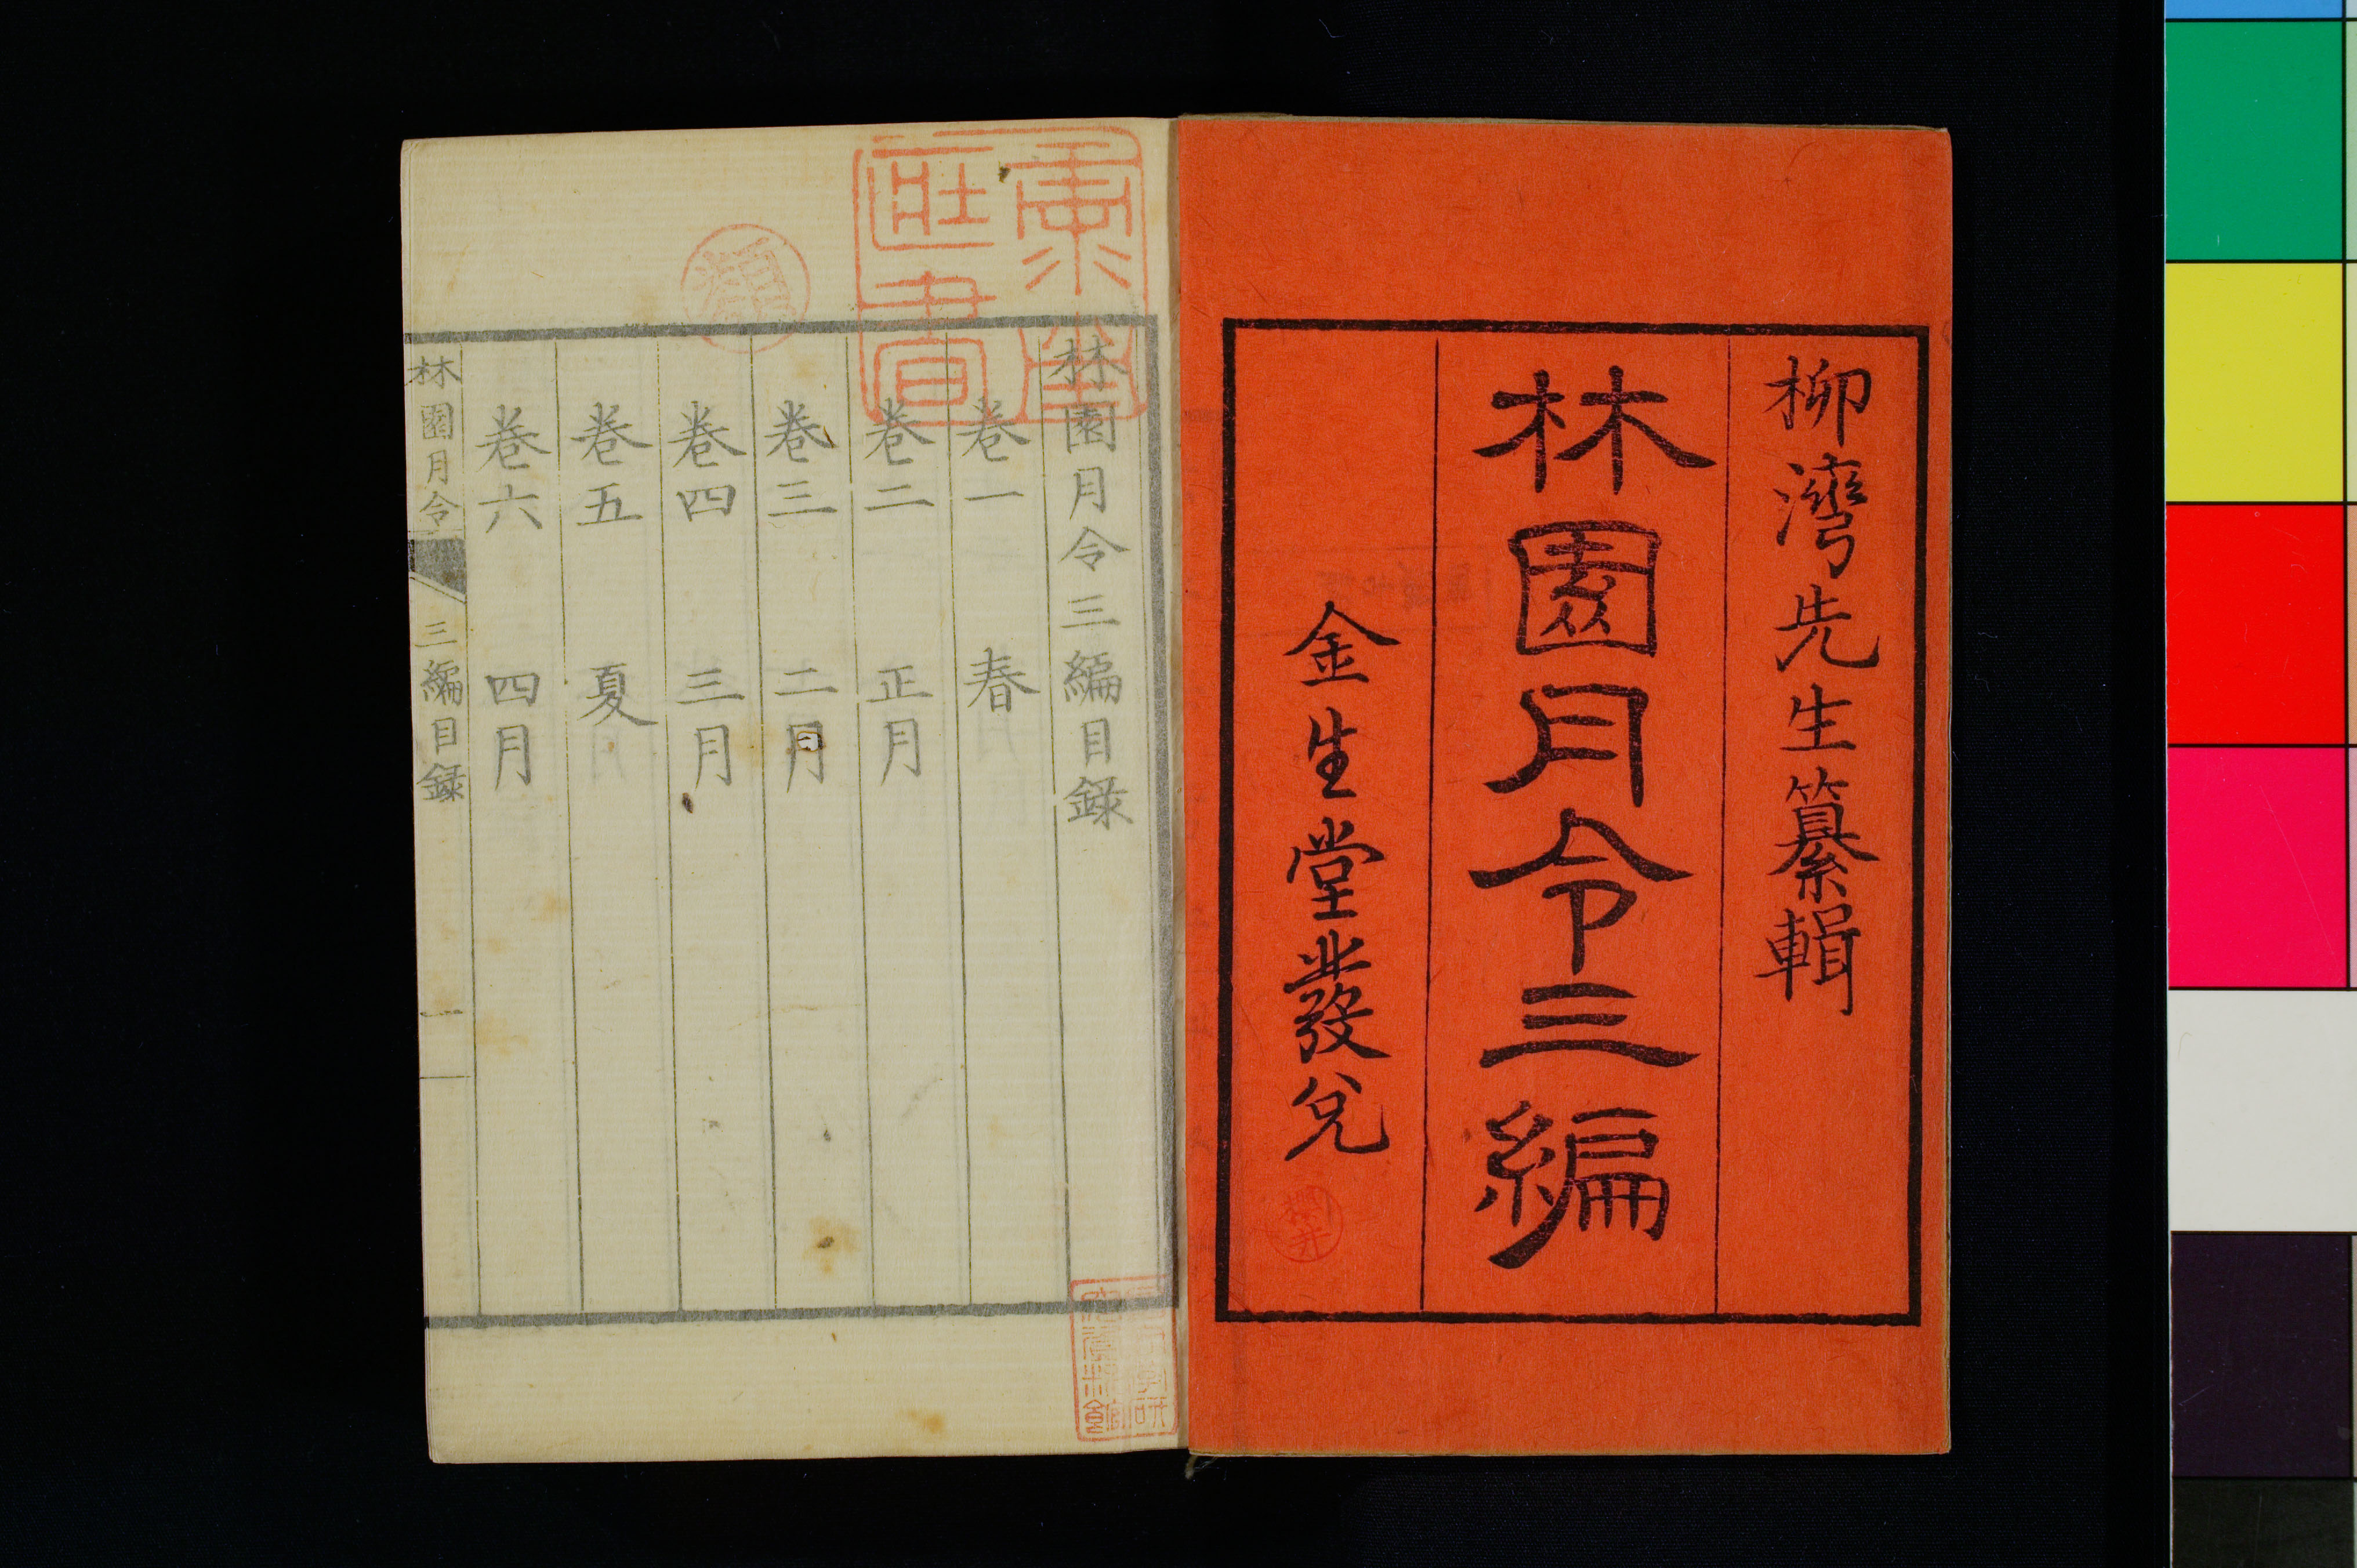 柳灣先生纂輯
林園月令三編
金生堂發兌
林園月令三編目録
卷一　春
卷二　正月
卷三　二月
卷四　三月
卷五　夏
卷六　四月
林園月令　三編目録　一